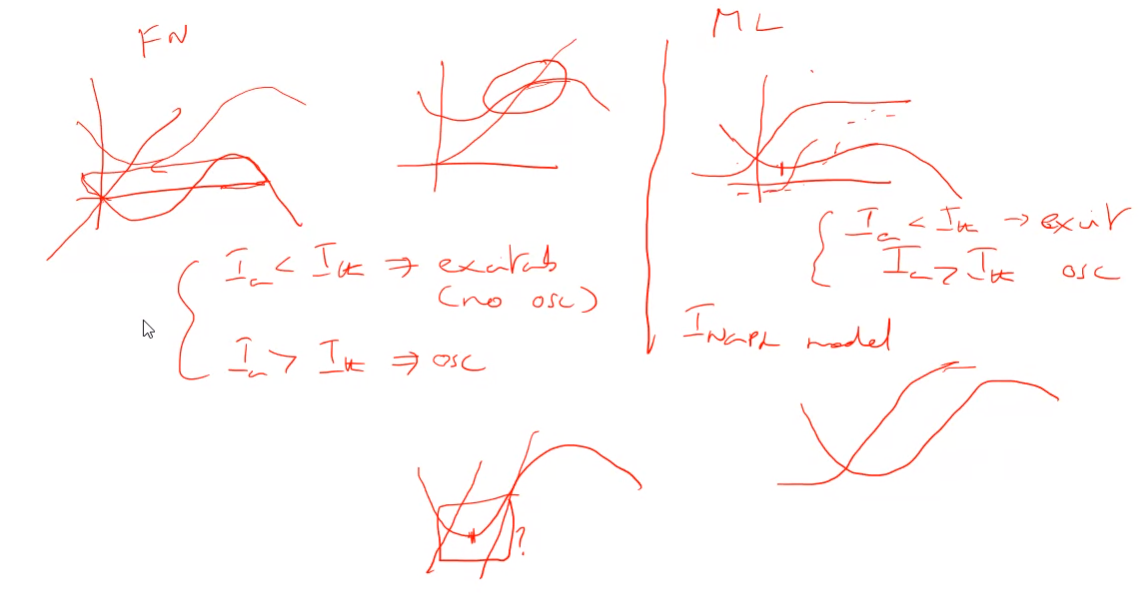 FN
I_a < I_th ⇒ excitab
(no osc)
I_a > I_th ⇒ osc
?
ML
I_a < I_th → excit
I_a > I_th osc
model